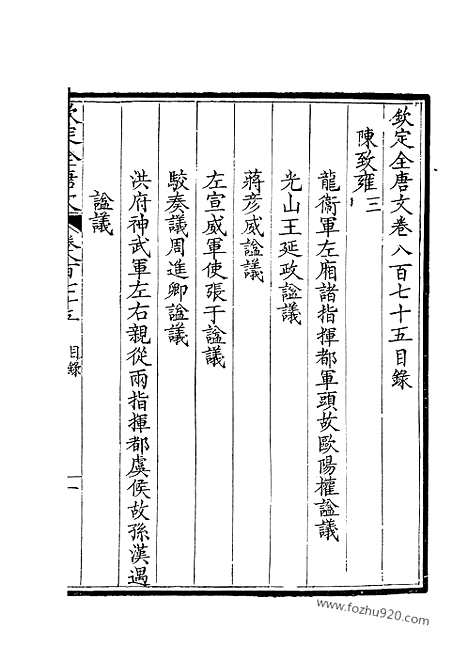 欽定全唐文卷八百七十五目錄
陳致雍三
龍衛軍左廂諸指揮都軍頭故歐陽權諡議
光山王延政諡議
蔣彥威諡議
左宣威軍使張于諡議
駮奏議周進卿諡議
洪府神武軍左右親從兩指揮都虞侯故孫漢遇
諡議
欽定全唐文 卷八百七十五 目錄 一
www.fozhu920.com